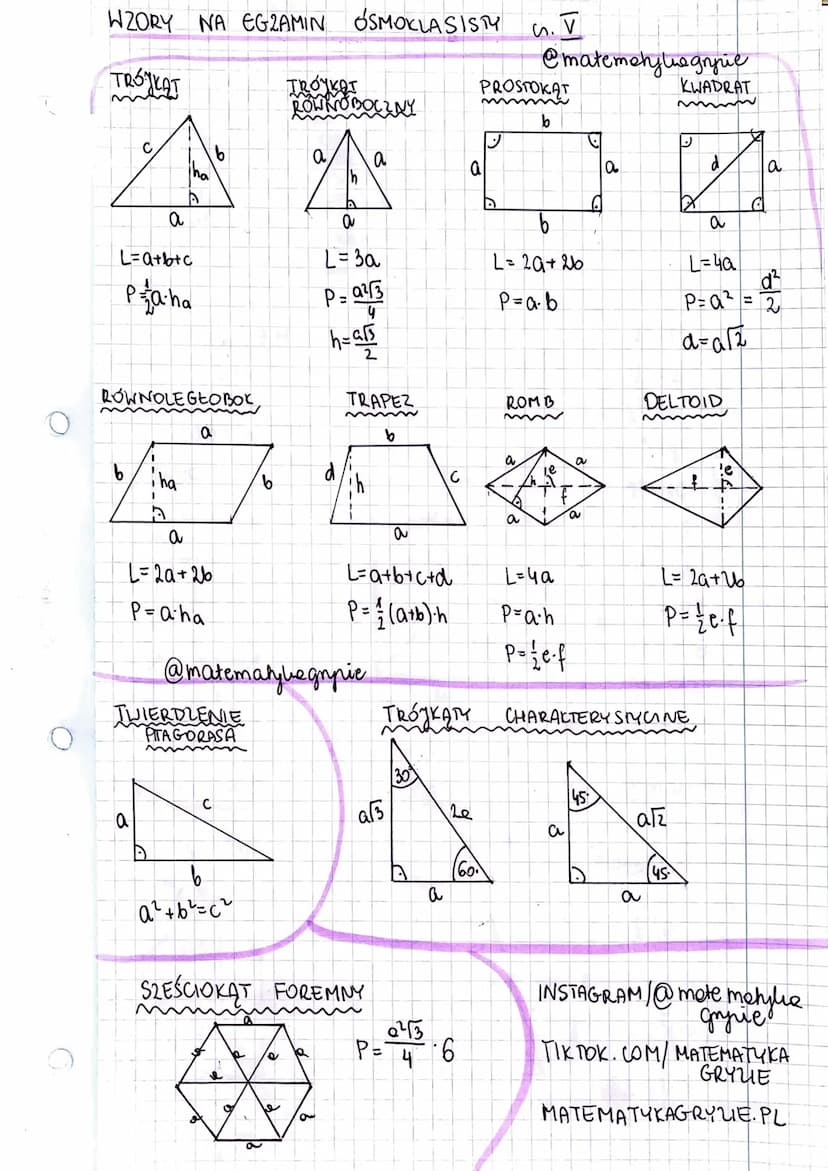 WZORY NA EGZAMIN ÓSMOKLASISTY cz. V
@matematykagryzie
TRÓJKĄT
c
b
ha
a
L=a+b+c
P=½a·ha
TRÓJKĄT
RÓWNOBOCZNY
a
a
h
a
L=3a
P=a²√3/4
h=a√3/2
PROSTOKĄT
b
a
a
b
L=2a+2b
P=a·b
KWADRAT
d
a
a
L=4a
P=a²=d²/2
d=a√2
RÓWNOLEGŁOBOK
a
b
ha
b
a
L=2a+2b
P=a·ha
TRAPEZ
b
d
h
c
a
L=a+b+c+d
P=½(a+b)·h
ROMB
a
a
e
h
f
a
a
L=4a
P=a·h
P=½e·f
DELTOID
e
f
L=2a+2b
P=½e·f
@matematykagryzie
TWIERDZENIE
PITAGORASA
a
c
b
a²+b²=c²
TRÓJKĄTY CHARAKTERYSTYCZNE
30°
a√3
2a
60°
a
45°
a
a√2
45°
a
SZEŚCIOKĄT FOREMNY
a
a
a
a
a
a
a
a
a
a
a
P=a²√3/4·6
INSTAGRAM/@matematyka
gryzie
TIKTOK.COM/MATEMATYKA
GRYZIE
MATEMATYKAGRYZIE.PL